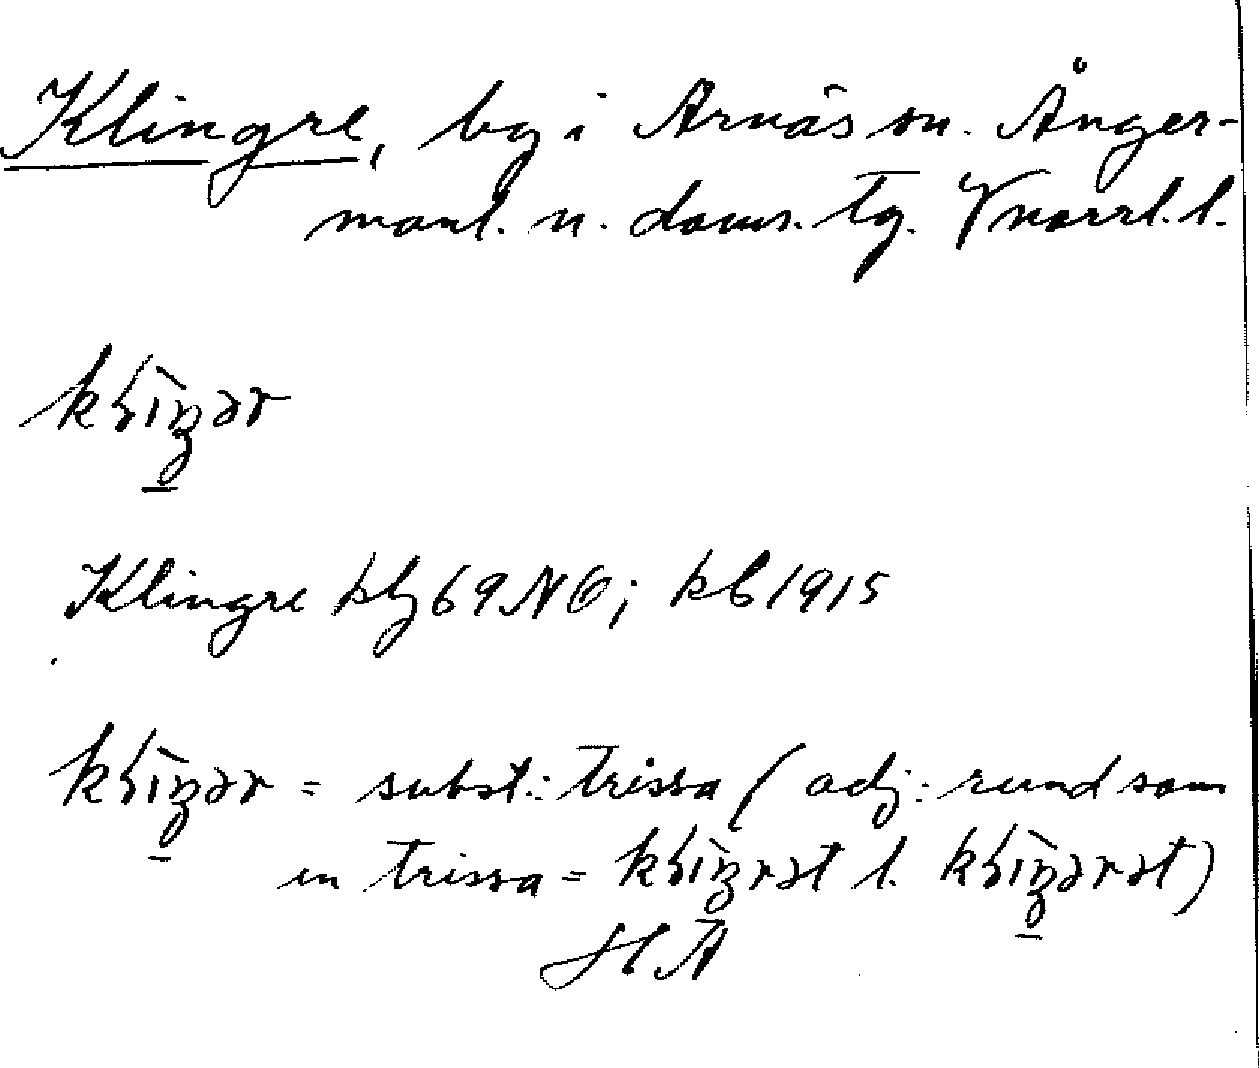 Klingre, by i Arnäs sn. Ånger-
manl. n. doms. tg. Vnorrl. l.
kḷìŋər
Klingre kbl 69 NO; kb 1915
kḷìŋər = subst.: trissa (adj.: rund som
en trissa = kḷìŋrət l. kḷìŋərət)
HÅ